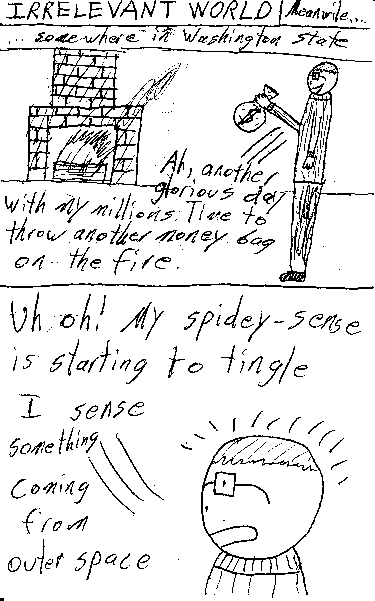 IRRELEVANT WORLD | Meanwile...
... somewhere in Washington State
Ah, another
glorious day
with my millions. Time to
throw another money bag
on the fire.
Uh oh! My spidey-sense
is starting to tingle
I sense
something
coming
from
outer space